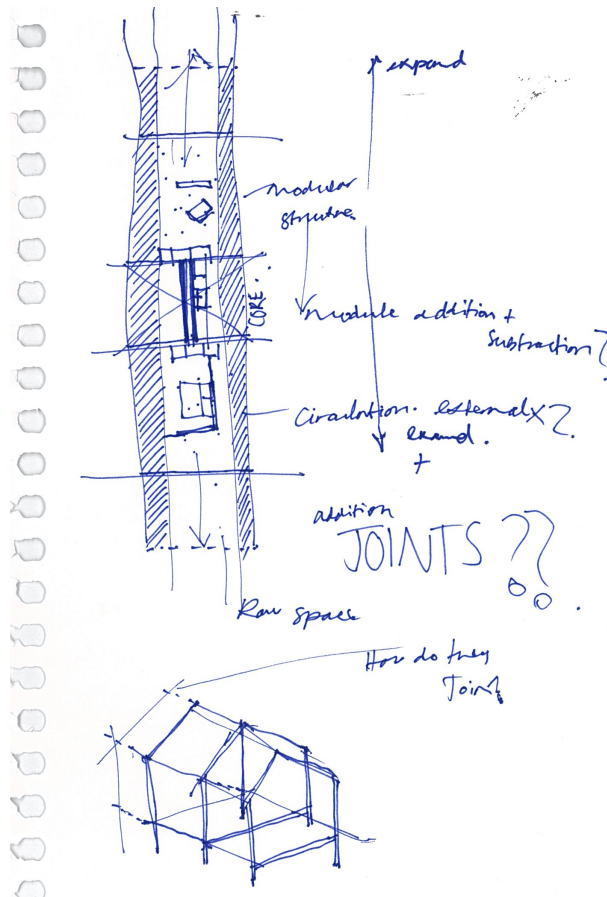 expand
modular
structure
CORE.
module addition +
subtraction?
Circulation. external x 2.
+
addition
JOINTS ??
Raw space
How do they
Joint